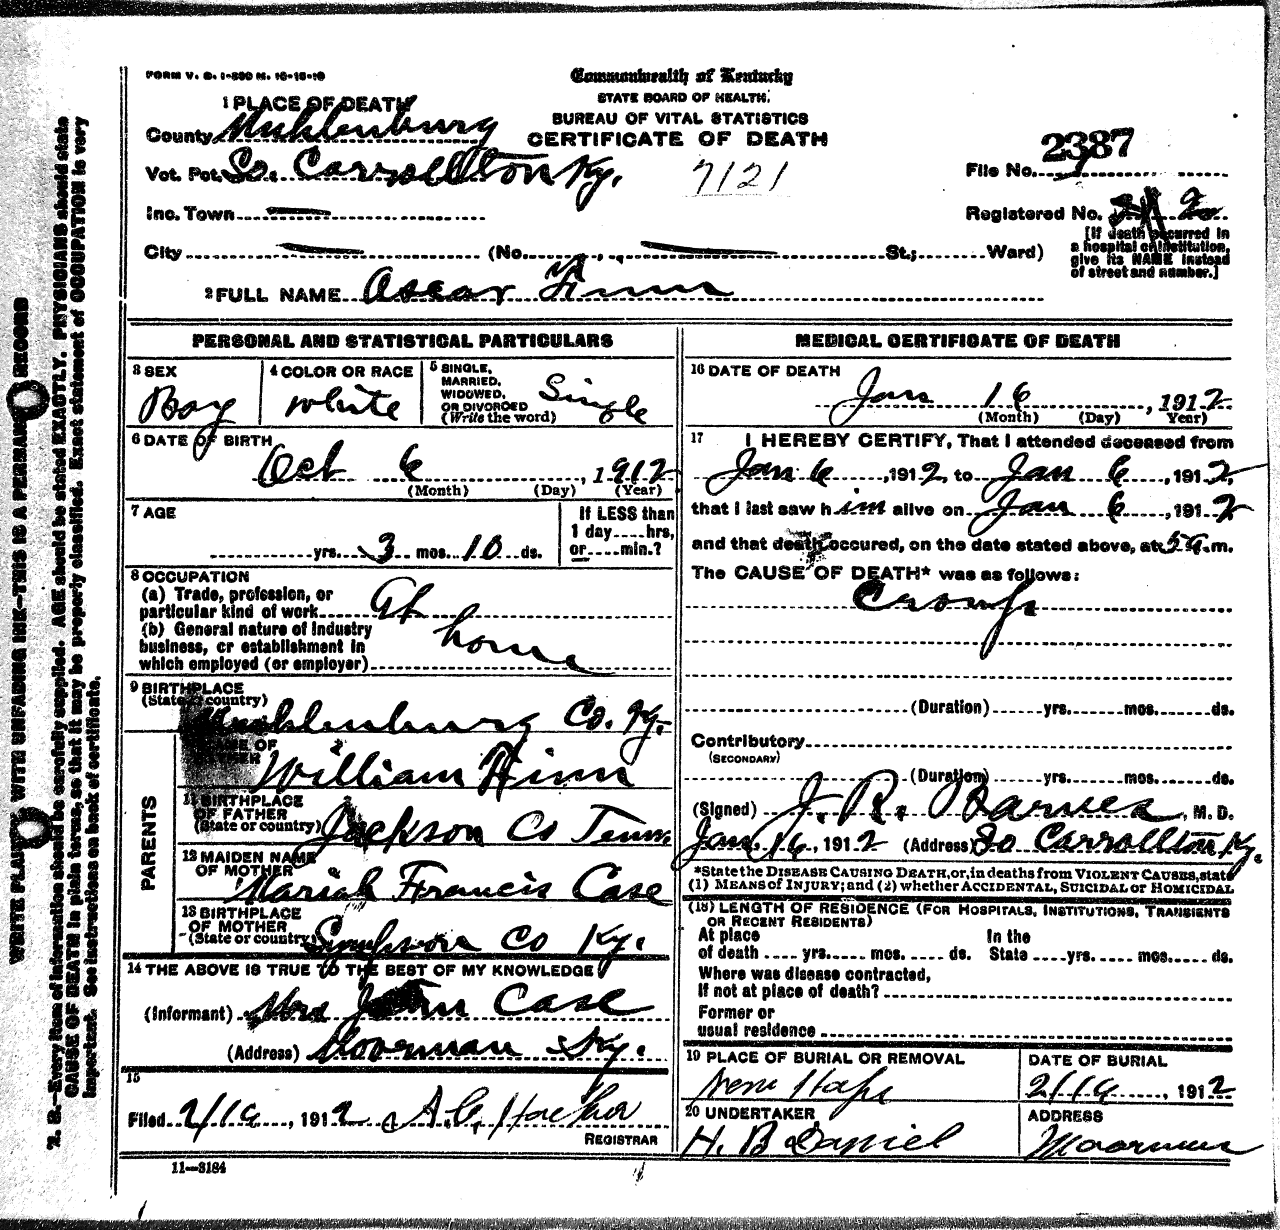 FORM V. S. 1-530 M. 10-15-10
Commonwealth of Kentucky
STATE BOARD OF HEALTH.
BUREAU OF VITAL STATISTICS
CERTIFICATE OF DEATH
1 PLACE OF DEATH
County Muhlenburg
Vot. Pct. So. Carrollton Ky.
7121
File No. 2387
Inc. Town
Registered No. 2
City (No. St.; Ward)
[If death occurred in a hospital or institution, give its NAME instead of street and number.]
2 FULL NAME Oscar Finn
PERSONAL AND STATISTICAL PARTICULARS
3 SEX Boy
4 COLOR OR RACE white
5 SINGLE, MARRIED, WIDOWED, OR DIVORCED (Write the word) Single
6 DATE OF BIRTH
Oct 6, 1912
(Month) (Day) (Year)
7 AGE
yrs. 3 mos. 10 ds.
If LESS than 1 day....hrs, or....min.?
8 OCCUPATION
(a) Trade, profession, or
particular kind of work At home
(b) General nature of Industry
business, or establishment in
which employed (or employer)
9 BIRTHPLACE
(State or country)
Muhlenburg Co. Ky.
PARENTS
NAME OF FATHER William Finn
11 BIRTHPLACE OF FATHER (State or country) Jackson Co Tenn.
12 MAIDEN NAME OF MOTHER Mariah Francis Case
13 BIRTHPLACE OF MOTHER (State or country) Sympson Co Ky.
14 THE ABOVE IS TRUE TO THE BEST OF MY KNOWLEDGE
(Informant) Mrs John Case
(Address) Moorman Ky.
15
Filed 2/19, 1912
REGISTRAR
11-3184
MEDICAL CERTIFICATE OF DEATH
16 DATE OF DEATH
Jan 16, 1912
(Month) (Day) Year)
17 I HEREBY CERTIFY, That I attended deceased from
Jan 6, 1912, to Jan 6, 1912,
that I last saw him alive on Jan 6, 1912
and that death occured, on the date stated above, at 5 a.m.
The CAUSE OF DEATH* was as follows:
Croup
(Duration) yrs. mos. ds.
Contributory
(SECONDARY)
(Duration) yrs. mos. ds.
(Signed) J. R. Barnes, M. D.
Jan. 16, 1912 (Address) So Carrollton Ky.
*State the DISEASE CAUSING DEATH, or, in deaths from VIOLENT CAUSES, state
(1) MEANS OF INJURY; and (2) whether ACCIDENTAL, SUICIDAL or HOMICIDAL
(18) LENGTH OF RESIDENCE (FOR HOSPITALS, INSTITUTIONS, TRANSIENTS
OR RECENT RESIDENTS)
At place of death yrs. mos. ds. In the State yrs. mos. ds.
Where was disease contracted,
If not at place of death?
Former or
usual residence
19 PLACE OF BURIAL OR REMOVAL
New Hope
DATE OF BURIAL
2/19, 1912
20 UNDERTAKER
H. B Daniel
ADDRESS
Moorman
WRITE PLAINLY WITH UNFADING INK-THIS IS A PERMANENT RECORD
N. B.-Every item of information should be carefully supplied. AGE should be stated EXACTLY. PHYSICIANS should state
CAUSE OF DEATH in plain terms, so that it may be properly classified. Exact statement of OCCUPATION is very
important. See instructions on back of certificate.